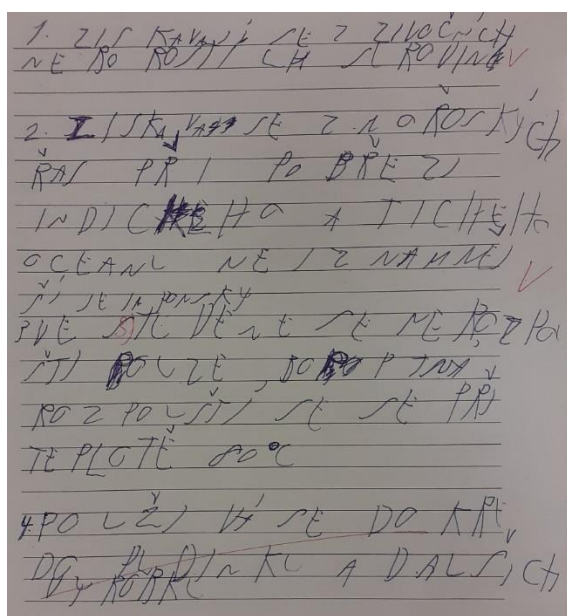 1. ZISKAVAJÍ SE Z ZIVOČNÍCH
NEBO ROSTI CH SUROVIN
2. ZISKAVAJÍ SE Z MOŘSKÝCH
ŘAS PŘI POBŘEZI
INDICKÉHO A TICHÉHO
OCEANU NEJZNAMNEJ
ŠÍ JE JAPONSKÝ
VE STUDENE SE NEROZPOU
ŠTI POUZE, BOPTNA
ROZPOUŠTI SE SE PŘI
TEPLOTĚ 80°C
4. POUŽIVÁ SE DO KRE
A DALŠICH